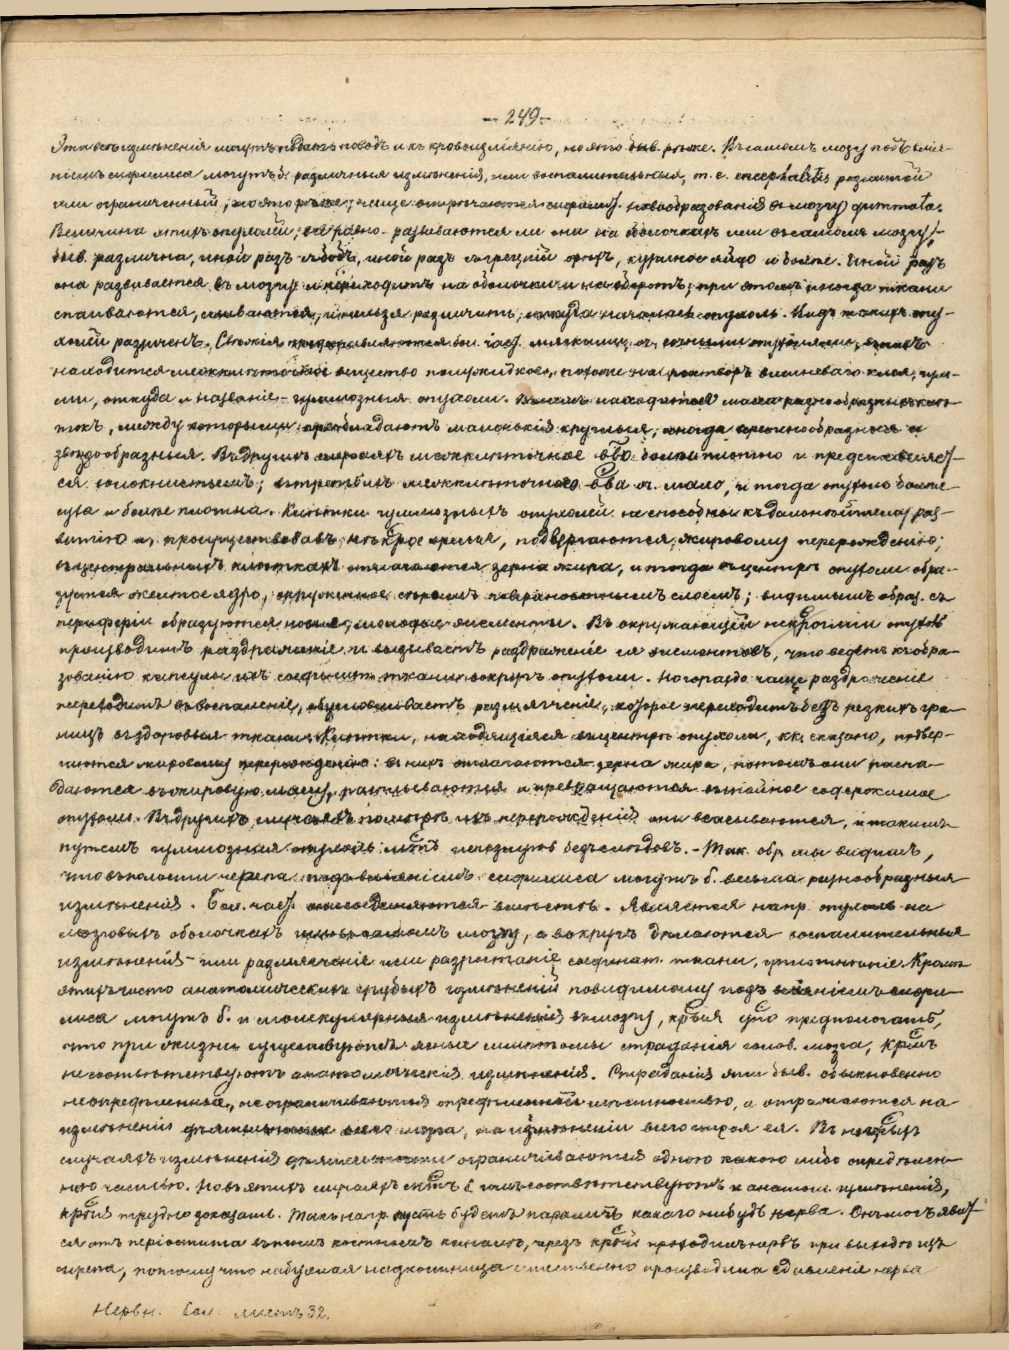 — 249 —
Эти всѣ измѣненія могутъ давать поводъ и къ кровоизліянію, но это быв. рѣже. Въ самомъ мозгу подъ влія-
ніемъ сифилиса могутъ б. различныя измѣненія, или воспалительныя, т. е. encephalitis разлитой
или ограниченный, но это рѣже; чаще встрѣчаются сифилид. новообразованія въ мозгу gummata.
Величина этихъ опухолей, все равно развиваются ли они на оболочкахъ или въ самомъ мозгу,
быв. различна, иной разъ съ бобъ, иной разъ съ грецкій орѣхъ, куриное яйцо и болѣе. Иной разъ
она развивается въ мозгу и переходитъ на оболочки и наоборотъ; при этомъ иногда ткани
спаиваются, сливаются, и нельзя различить, откуда началась опухоль. Видъ такихъ опу-
холей различенъ. Свѣжія представляются бол. част. мягкими, оч. сочными опухолями, въ нихъ
находится мелкоклѣточное вещество полужидкое, похожее на растворъ вишневаго клея, гум-
ми, откуда и названіе — гуммозныя опухоли. Въ нихъ находится масса разнообразныхъ клѣ-
токъ, между которыми преобладаютъ маленькія круглыя, иногда веретенообразныя и
звѣздообразныя. Въ другихъ случаяхъ мелкоклѣточное в-во болѣе плотно и представляет-
ся волокнистымъ; въ третьихъ мелкоклѣточнаго в-ва оч. мало, и тогда опухоль болѣе
суха и болѣе плотна. Клѣтки гуммозныхъ опухолей не способны къ дальнѣйшему раз-
витію и, просуществовавъ нѣк-рое время, подвергаются жировому перерожденію;
въ центральныхъ клѣткахъ отлагаются зерна жира, и тогда въ центрѣ опухоли обра-
зуется желтое ядро, окруженное сѣрымъ поверхностнымъ слоемъ; видимымъ образ. съ
периферіи образуются новые, молодые элементы. Въ окружающей невроглии опухоль
производитъ раздраженіе и вызываетъ раздраженіе ея элементовъ, что ведетъ къ обра-
зованію капсулы изъ соединит. ткани вокругъ опухоли. Но гораздо чаще раздраженіе
переходитъ въ воспаленіе, обусловливаетъ размягченіе, которое переходитъ безъ рѣзкихъ гра-
ницъ въ здоровыя ткани. Клѣтки, находящіяся въ центрѣ опухоли, кк. сказано, подвер-
гаются жировому перерожденію: въ нихъ отлагаются зерна жира, потомъ они распа-
даются въ жировую массу, расплываются и превращаются въ гнойное содержимое
опухоли. Въ другихъ случаяхъ послѣ перерожденія они всасываются, и такимъ
путемъ гуммозная опухоль м-тъ исчезнуть безъ слѣдовъ. — Так. обр. мы видимъ,
что въ полости черепа подъ вліяніемъ сифилиса могутъ б. весьма разнообразныя
измѣненія. Бол. част. они соединяются вмѣстѣ. Является напр. опухоль на
мозговыхъ оболочкахъ или въ самомъ мозгу, а вокругъ дѣлаются воспалительныя
измѣненія — или размягченіе или разрастаніе соединит. ткани, уплотненіе. Кромѣ
этихъ чисто анатомическихъ грубыхъ измѣненій повидимому подъ вліяніемъ сифи-
лиса могутъ б. и молекулярныя измѣненія въ мозгу, к-рыя предполагать,
что при жизни существуютъ ясные симптомы страданія голов. мозга, к-рымъ
не соотвѣтствуютъ анатомическія измѣненія. Страданія эти быв. обыкновенно
неопредѣленныя, не ограничиваются опредѣленной мѣстностью, а отражаются на
измѣненіи дѣятельности всего мозга, на измѣненіи всего строя ея. Въ нѣк-рыхъ
случаяхъ измѣненія дѣятельности ограничиваются одною какою либо опредѣлен-
ною частью. Но въ этихъ случаяхъ соотвѣтствуютъ и анатом. измѣненія,
к-рыя трудно доказать. Такъ напр. пусть будетъ параличъ какаго нибудь нерва. Онъ могъ явит-
ся отъ періостита въ томъ костномъ каналѣ, чрезъ к-рый проходилъ нервъ при выходѣ изъ
черепа, потому что набухшая надкостница естественно производила сдавленіе нерва
Нервн. бол. листъ 32.